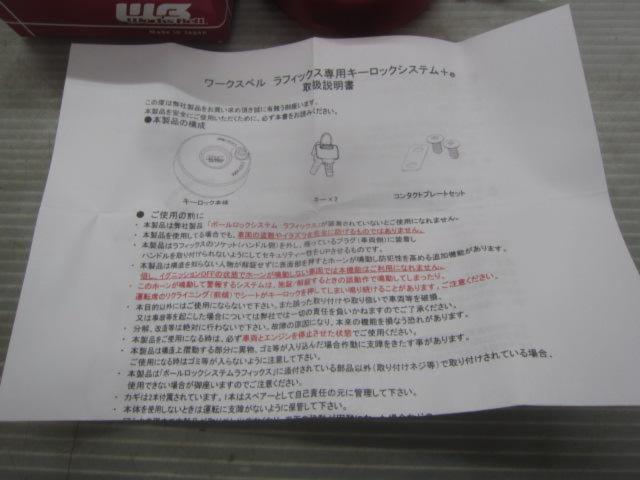 WB
Works Bell
Made in Japan
ワークスベル ラフィックス専用キーロックシステム+e
取扱説明書
この度は弊社製品をお買い求め頂き誠に有難う御座います。
本製品を安全にご使用いただくために、必ず本書をお読みください。
●本製品の構成
キーロック本体
キー×2
コンタクトプレートセット
● ご使用の前に
・本製品は弊社製品「ボールロックシステム ラフィックス」が装着されていないとご使用になれません。
・本製品を使用してる場合でも、車両の盗難やイタズラを完全に防げるものではありません。
・本製品はラフィックスのソケット(ハンドル側)を外し、残っているプラグ(車両側)に装着し
ハンドルを取付けられないようにしてセキュリティー性をUPさせるものです。
・本製品は構造を知らない人物が解錠せずに表面部を押すとホーンが鳴動し防犯性を高める追加機能があります。
但し、イグニッションOFFの状態でホーンが鳴動しない車両では本機能はご利用になれません。
・このホーンが鳴動して警報するシステムは、施錠/解錠するときの誤動作で鳴動してしまったり、
運転席のリクライニング(前傾)でシートがキーロックを押してしまい鳴り続けることがあります。ご注意ください。
・本目的以外にはご使用にならないで下さい。また誤った取付けや取り扱いで車両等を破損、
又は事故等を起こした場合については弊社では一切の責任を負いかねますのでご了承ください。
・分解、改造等は絶対に行わないで下さい。故障の原因になり、本来の機能を損なう恐れがあります。
・本製品をご使用になる時は、必ず車両とエンジンを停止させた状態でご使用ください。
・本製品は構造上摺動する部分に異物、ゴミ等が入り込んだ場合作動に支障をきたす事があります。
ご使用になる時はゴミ等が入らないように注意して下さい。
・本製品は「ボールロックシステムラフィックス」に添付されている部品以外(取り付けネジ等)で取り付けされている場合、
使用できない場合が御座いますのでご注意ください。
・カギは2本付属されています。1本はスペアーとして自己責任の元に管理して下さい。
・本体を使用しないときは運転に支障がないように保管して下さい。